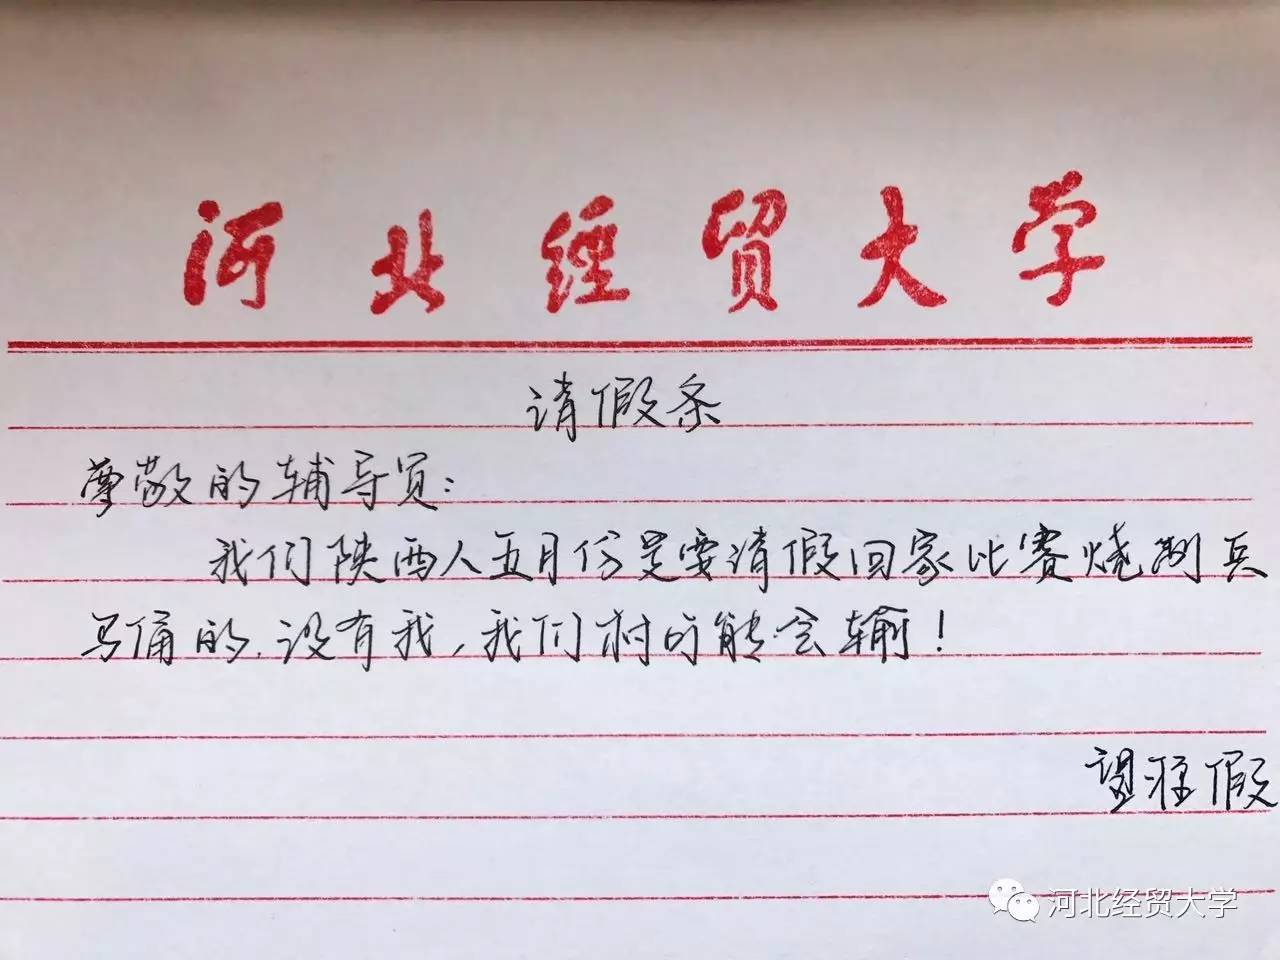 河北经贸大学
请假条
尊敬的辅导员：
我们陕西人五月份是要请假回家比赛烧制兵
马俑的.没有我,我们村可能会输!
望准假
河北经贸大学